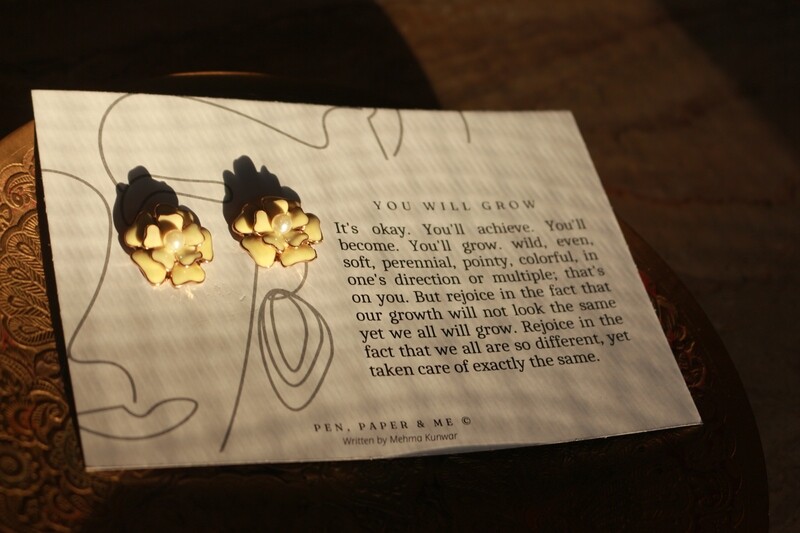 YOU WILL GROW
It's okay. You'll achieve. You'll
become. You'll grow. wild, even,
soft, perennial, pointy, colorful, in
one's direction or multiple; that's
on you. But rejoice in the fact that
our growth will not look the same
yet we all will grow. Rejoice in the
fact that we all are so different, yet
taken care of exactly the same.
PEN, PAPER & ME ©
Written by Mehma Kunwar